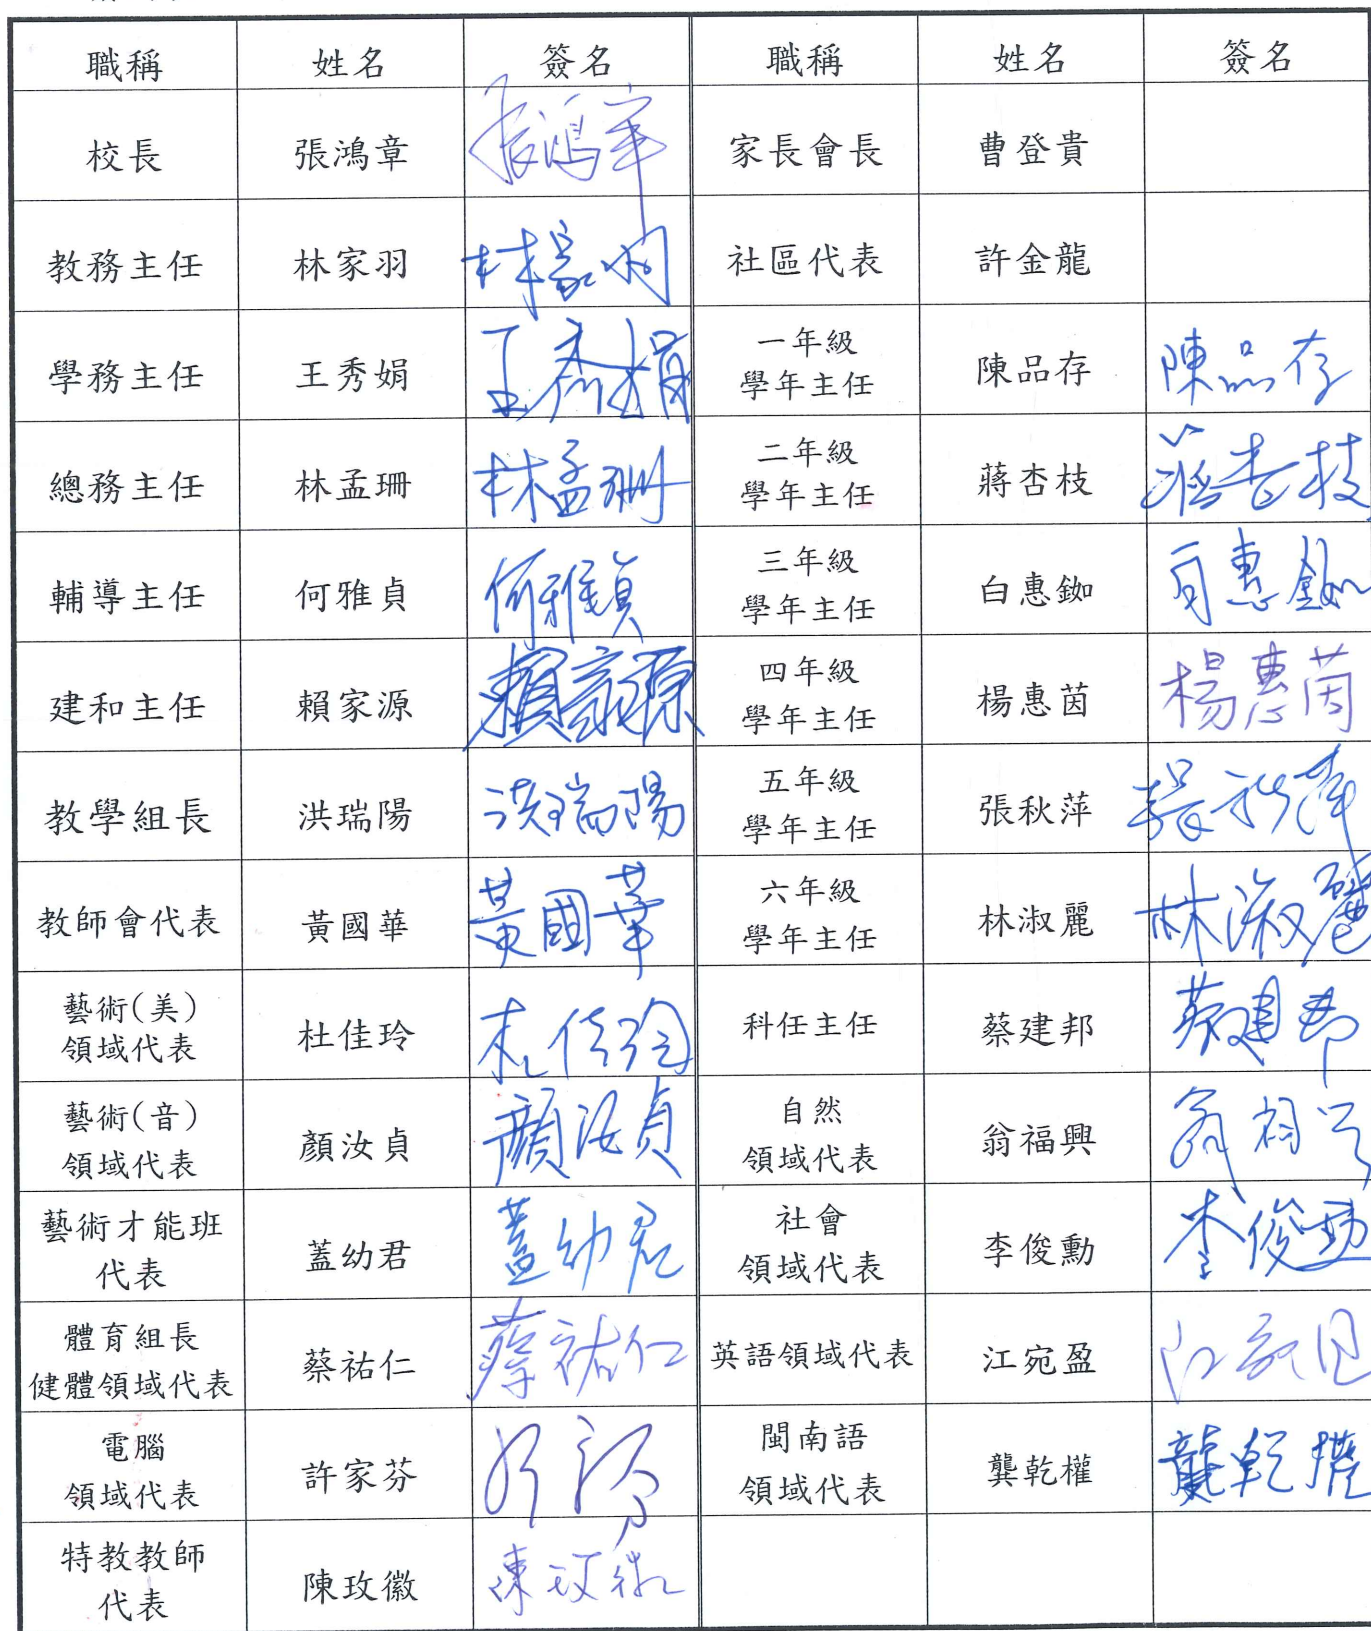 職稱 姓名 簽名 職稱 姓名 簽名
校長 張鴻章 張鴻章 家長會長 曹登貴
教務主任 林家羽 林家羽 社區代表 許金龍
學務主任 王秀娟 王秀娟 一年級 學年主任 陳品存 陳品存
總務主任 林孟珊 林孟珊 二年級 學年主任 蔣杏枝 蔣杏枝
輔導主任 何雅貞 何雅貞 三年級 學年主任 白惠銣 白惠銣
建和主任 賴家源 賴家源 四年級 學年主任 楊惠茵 楊惠茵
教學組長 洪瑞陽 洪瑞陽 五年級 學年主任 張秋萍 張秋萍
教師會代表 黃國華 黃國華 六年級 學年主任 林淑麗 林淑麗
藝術(美) 領域代表 杜佳玲 杜佳玲 科任主任 蔡建邦 蔡建邦
藝術(音) 領域代表 顏汝貞 顏汝貞 自然 領域代表 翁福興 翁福興
藝術才能班 代表 蓋幼君 蓋幼君 社會 領域代表 李俊勳 李俊勳
體育組長 健體領域代表 蔡祐仁 蔡祐仁 英語領域代表 江宛盈 江宛盈
電腦 領域代表 許家芬 閩南語 領域代表 龔乾權 龔乾權
特教教師 代表 陳玫徽 陳玫徽